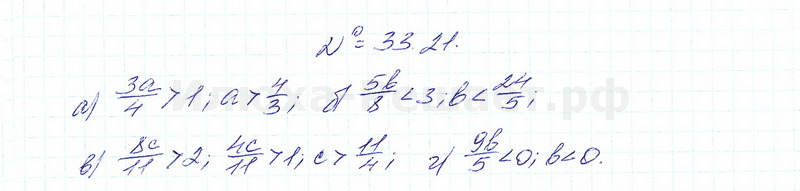 № = 33.21.
а) 3a/4 > 1; a > 4/3; б) 5b/8 < 3; b < 24/5;
в) 8c/11 > 2; 4c/11 > 1; c > 11/4; г) 9b/5 < 0; b < 0.